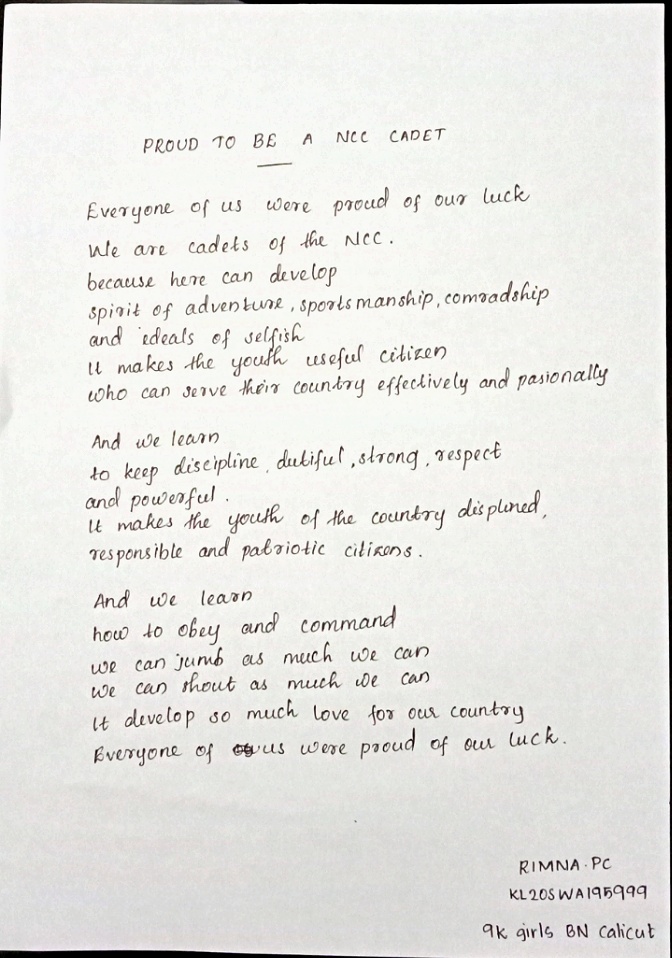 PROUD TO BE A NCC CADET
Everyone of us were proud of our luck
We are cadets of the NCC.
because here can develop
spirit of adventure, sportsmanship, comradship
and ideals of selfish
It makes the youth useful citizen
who can serve their country effectively and pasionally
And we learn
to keep discipline, dutiful, strong, respect
and powerful.
It makes the youth of the country displined,
responsible and patriotic citizens.
And we learn
how to obey and command
we can jumb as much we can
we can shout as much we can
It develop so much love for our country
Everyone of us were proud of our luck.
RIMNA.PC
KL20SWA195999
9K girls BN Calicut